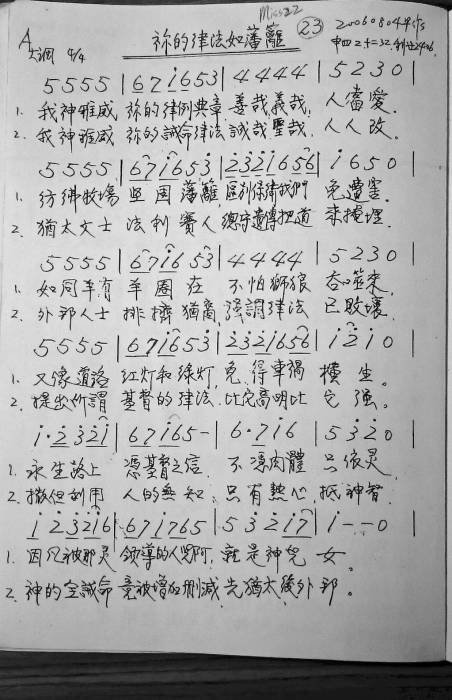 Miss22
祢的律法如藩籬 23 20060804
A大調 4/4 申四2十二32.
5 5 5 5 | 6 7 i 6 5 3 | 4 4 4 4 | 5 2 3 0 |
1. 我神雅威 祢的律例典章 善哉義哉, 人當愛.
2. 我神雅威 祢的誡命律法 誠哉聖哉, 人人改.
5 5 5 5 | 6 7 i 6 5 3 | 2 3 2 1 6 5 6 | i 6 5 0 |
1. 彷彿牧場 堅固藩籬 區別保衛我們 免遭害.
2. 猶太文士 法利賽人 總守遺傳把道 來掩埋.
5 5 5 5 | 6 7 i 6 5 3 | 4 4 4 4 | 5 2 3 0 |
1. 如同羊有 羊圈在 不怕獅狼 吞噬來.
2. 外邦人士 排擠猶裔, 强調律法 已敗壞.
5 5 5 5 | 6 7 i 6 5 3 | 2 3 2 1 6 5 6 | i 2 i 0 |
1. 又像道路 红灯和绿灯, 免得車禍 橫生。
2. 提出所謂 基督的律法 比它高明比 它強。
i · 2 3 2 i | 6 7 i 6 5 - | 6 · 7 i 6 | 5 3 2 0 |
1. 永生路上 憑基督之信 不憑肉體 只依灵,
2. 撒但利用 人的無知, 只有熱心 抵神督.
i 2 3 2 i 6 | 6 7 i 7 6 5 | 5 3 2 i 7 | i - - 0 |
1. 因凡被那灵 領導的人兒阿, 就是神兒 女.
2. 神的全誡命 竟被增加刪減 先猶太後外 邦。